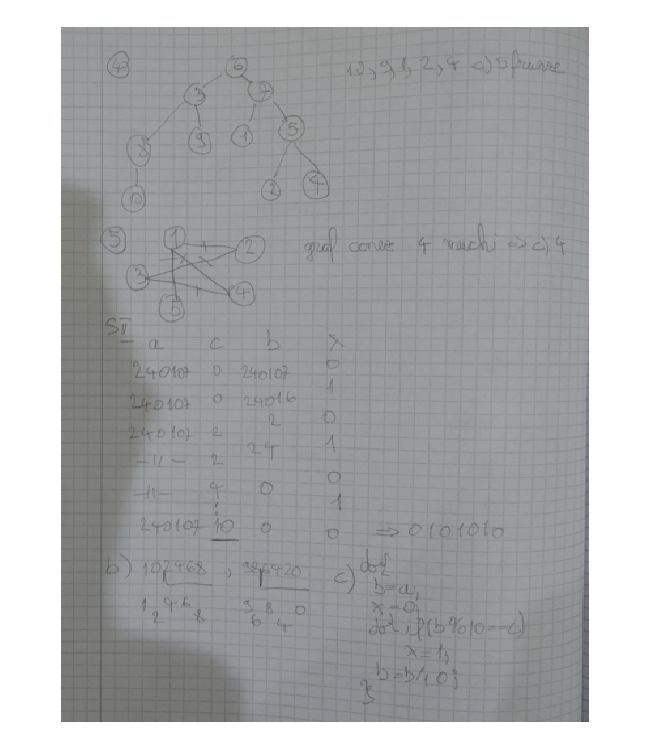 ④
6
3 7
8 9 1 5
10 2 4
10, 9, 1, 2, 4 c) 5 frunze
⑤
1 2
3 4
5
graf conex 4 muchii => c) 4
SII
a c b x
240107 0 240107 0
240107 0 24016 1
240107 2 2 0
-11- 2 24 1
-11- 4 0 0
⋮ 1
240107 10 0 0 => 0101010
b) 102468, 386420
1 2 4 6 8 3 8 6 4 0
c) do{
b=a;
x=0;
do{ if(b%10==c)
x=1;
b=b/10;
}